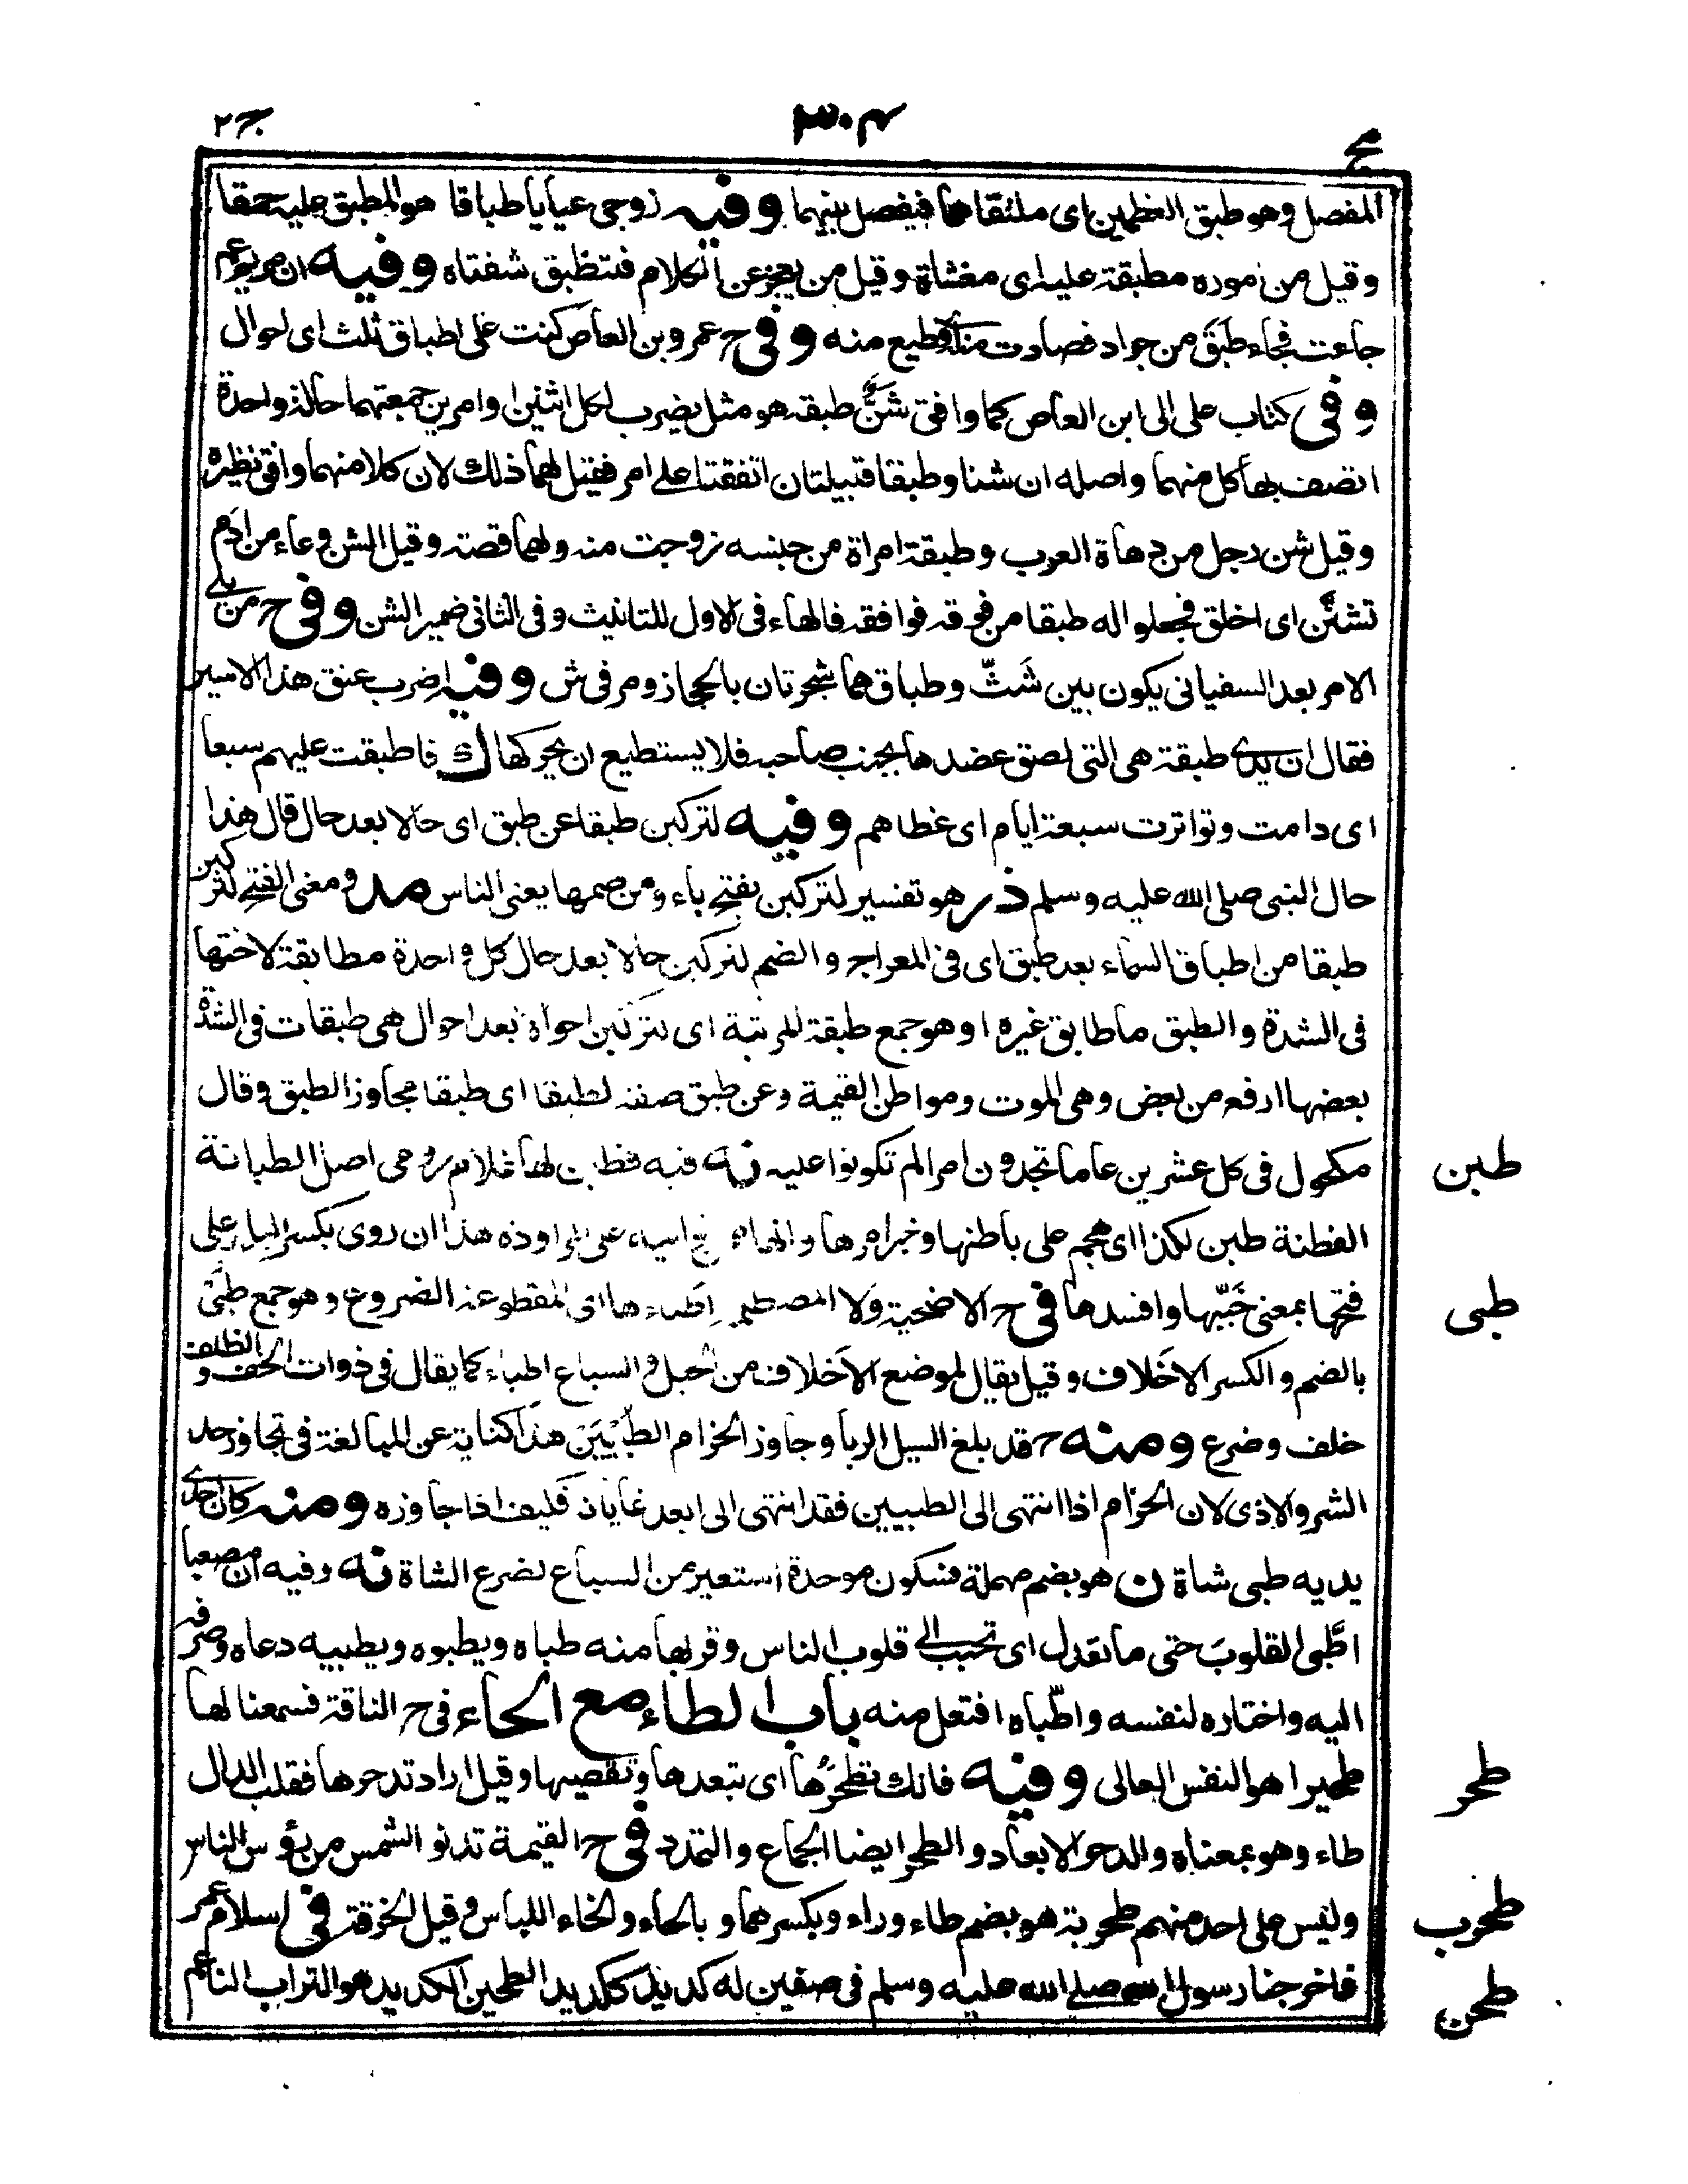 ج٢
٣٠٤
مج
المفصل وهو طبق العظمين اى ملتقاهما فيفصل بينهما وفيه زوجى عياياء طباقا هو المطبق عليه حمقا
وقيل من اموره مطبقة عليه اى مغشاة وقيل من يعجز عن الكلام فتنطبق شفتاه وفيه ان مريم ع م
جاعت فجاء طبق من جراد فصادت منه اى قطيع منه وفى ح عمرو بن العاص كنت على اطباق ثلث اى احوال
وفى كتاب على الى ابن العاص كما وافق شن طبقه هو مثل يضرب لكل اثنين او امرين جمعتهما حالة واحدة
اتصف بها كل منهما واصله ان شنا وطبقا قبيلتان اتفقتا على امر فقيل لهما ذلك لان كلا منهما وافق نظيره
وقيل شن رجل من دهاة العرب وطبقة امراة من جنسه زوجت منه ولهما قصة وقيل الشن وعاء من ادم
تشنن اى اخلق فجعلوا له طبقا من فوقه فوافقه فالهاء فى الاول للتانيث وفى الثانى ضمير الشن وفى ح من يلى
الامر بعد السفيانى يكون بين شث وطباق هما شجرتان بالحجاز ومر فى ش وفيه اضرب عنق هذا الاسير
فقال ان يدى طبقة هى التى لصق عضدها بجنب صاحبه فلا يستطيع ان يحركها ك فاطبقت عليهم سبعا
اى دامت وتواترت سبعة ايام اى غطاهم وفيه لتركبن طبقا عن طبق اى حالا بعد حال قال هذا
حال النبى صلى الله عليه وسلم ذر هو تفسير لتركبن بفتح باء ومن ضمها يعنى الناس مد ومعنى الفتح لتركبن
طبقا من اطباق السماء بعد طبق اى فى المعراج والضم لتركبن حالا بعد حال كل واحدة مطابقة لاختها
فى الشدة والطبق ما طابق غيره او هو جمع طبقة للمرتبة اى لتركبن احوالا بعد احوال هى طبقات فى الشدة
بعضها ارفع من بعض وهى الموت ومواطن القيمة وعن طبق صفة لطبقا اى طبقا مجاوزا لطبق وقال
مكحول فى كل عشرين عاما تجدون امرا لم تكونوا عليه نه فيه فطبن لها غلام رومى اصل الطبانة
الفطنة طبن لكذا اى هجم على باطنها وخبر امرها وانها من تواتيه على المراودة هذا ان روى بكسر الباء وعلى
فتحها بمعنى خببها وافسدها فى ح الاضحية ولا المصطلمة اطباءها اى المقطوعة الضروع وهو جمع طبى
بالضم والكسر الاخلاف وقيل يقال لموضع الاخلاف من الخيل والسباع اطباء كما يقال فى ذوات الخف والظلف
خلف وضرع ومنه ح قد بلغ السيل الربا وجاوز الحزام الطبيين هذا كناية عن المبالغة فى تجاوز حد
الشر والاذى لان الحزام اذا انتهى الى الطبيين فقد انتهى الى ابعد غاياته فكيف اذا جاوزه ومنه كان احدى
يديه طبى شاة ن هو بضم مهملة فسكون موحدة استعير من السباع لضرع الشاة نه وفيه ان مصعبا
اطبى القلوب حتى ما تعدل اى تحبب الى قلوب الناس وقربها منه طباه ويطبوه ويطبيه دعاه وصرفه
اليه واختاره لنفسه واطباه افتعل منه باب الطاء مع الحاء فى ح الناقة فسمعنا لها
طحيرا هو النفس العالى وفيه فانك تطحرها اى تبعدها وتقصيها وقيل اراد تدحرها فقلب الدال
طاء وهو بمعناه والدحر الابعاد والطحر ايضا الجماع والتمدد فى ح القيمة تدنو الشمس من رؤس الناس
وليس على احد منهم طحربة هو بضم طاء وراء وبكسرهما وبالحاء والخاء اللباس وقيل الخرقة فى اسلام عمر
فاخرجنا رسول الله صلى الله عليه وسلم فى صفين له كديد ككديد الطحين الكديد هو التراب الناعم
طبن
طبى
طحر
طحرب
طحن